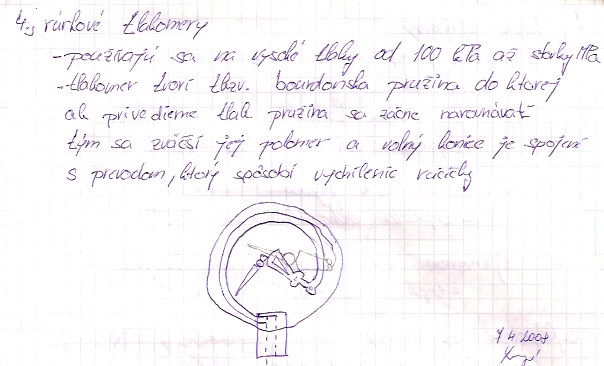 4., rúrkové tlakomery
- používajú sa na vysoké tlaky od 100 kPa až stovky MPa
- tlakomer tvorí tkzv. bourdonska pružina do ktorej
ak privedieme tlak pružina sa začne narovnávať
tým sa zväčší jej polomer a voľný koniec je spojený
s prevodom, ktorý spôsobí vychílenie ručičky
7.4.2008